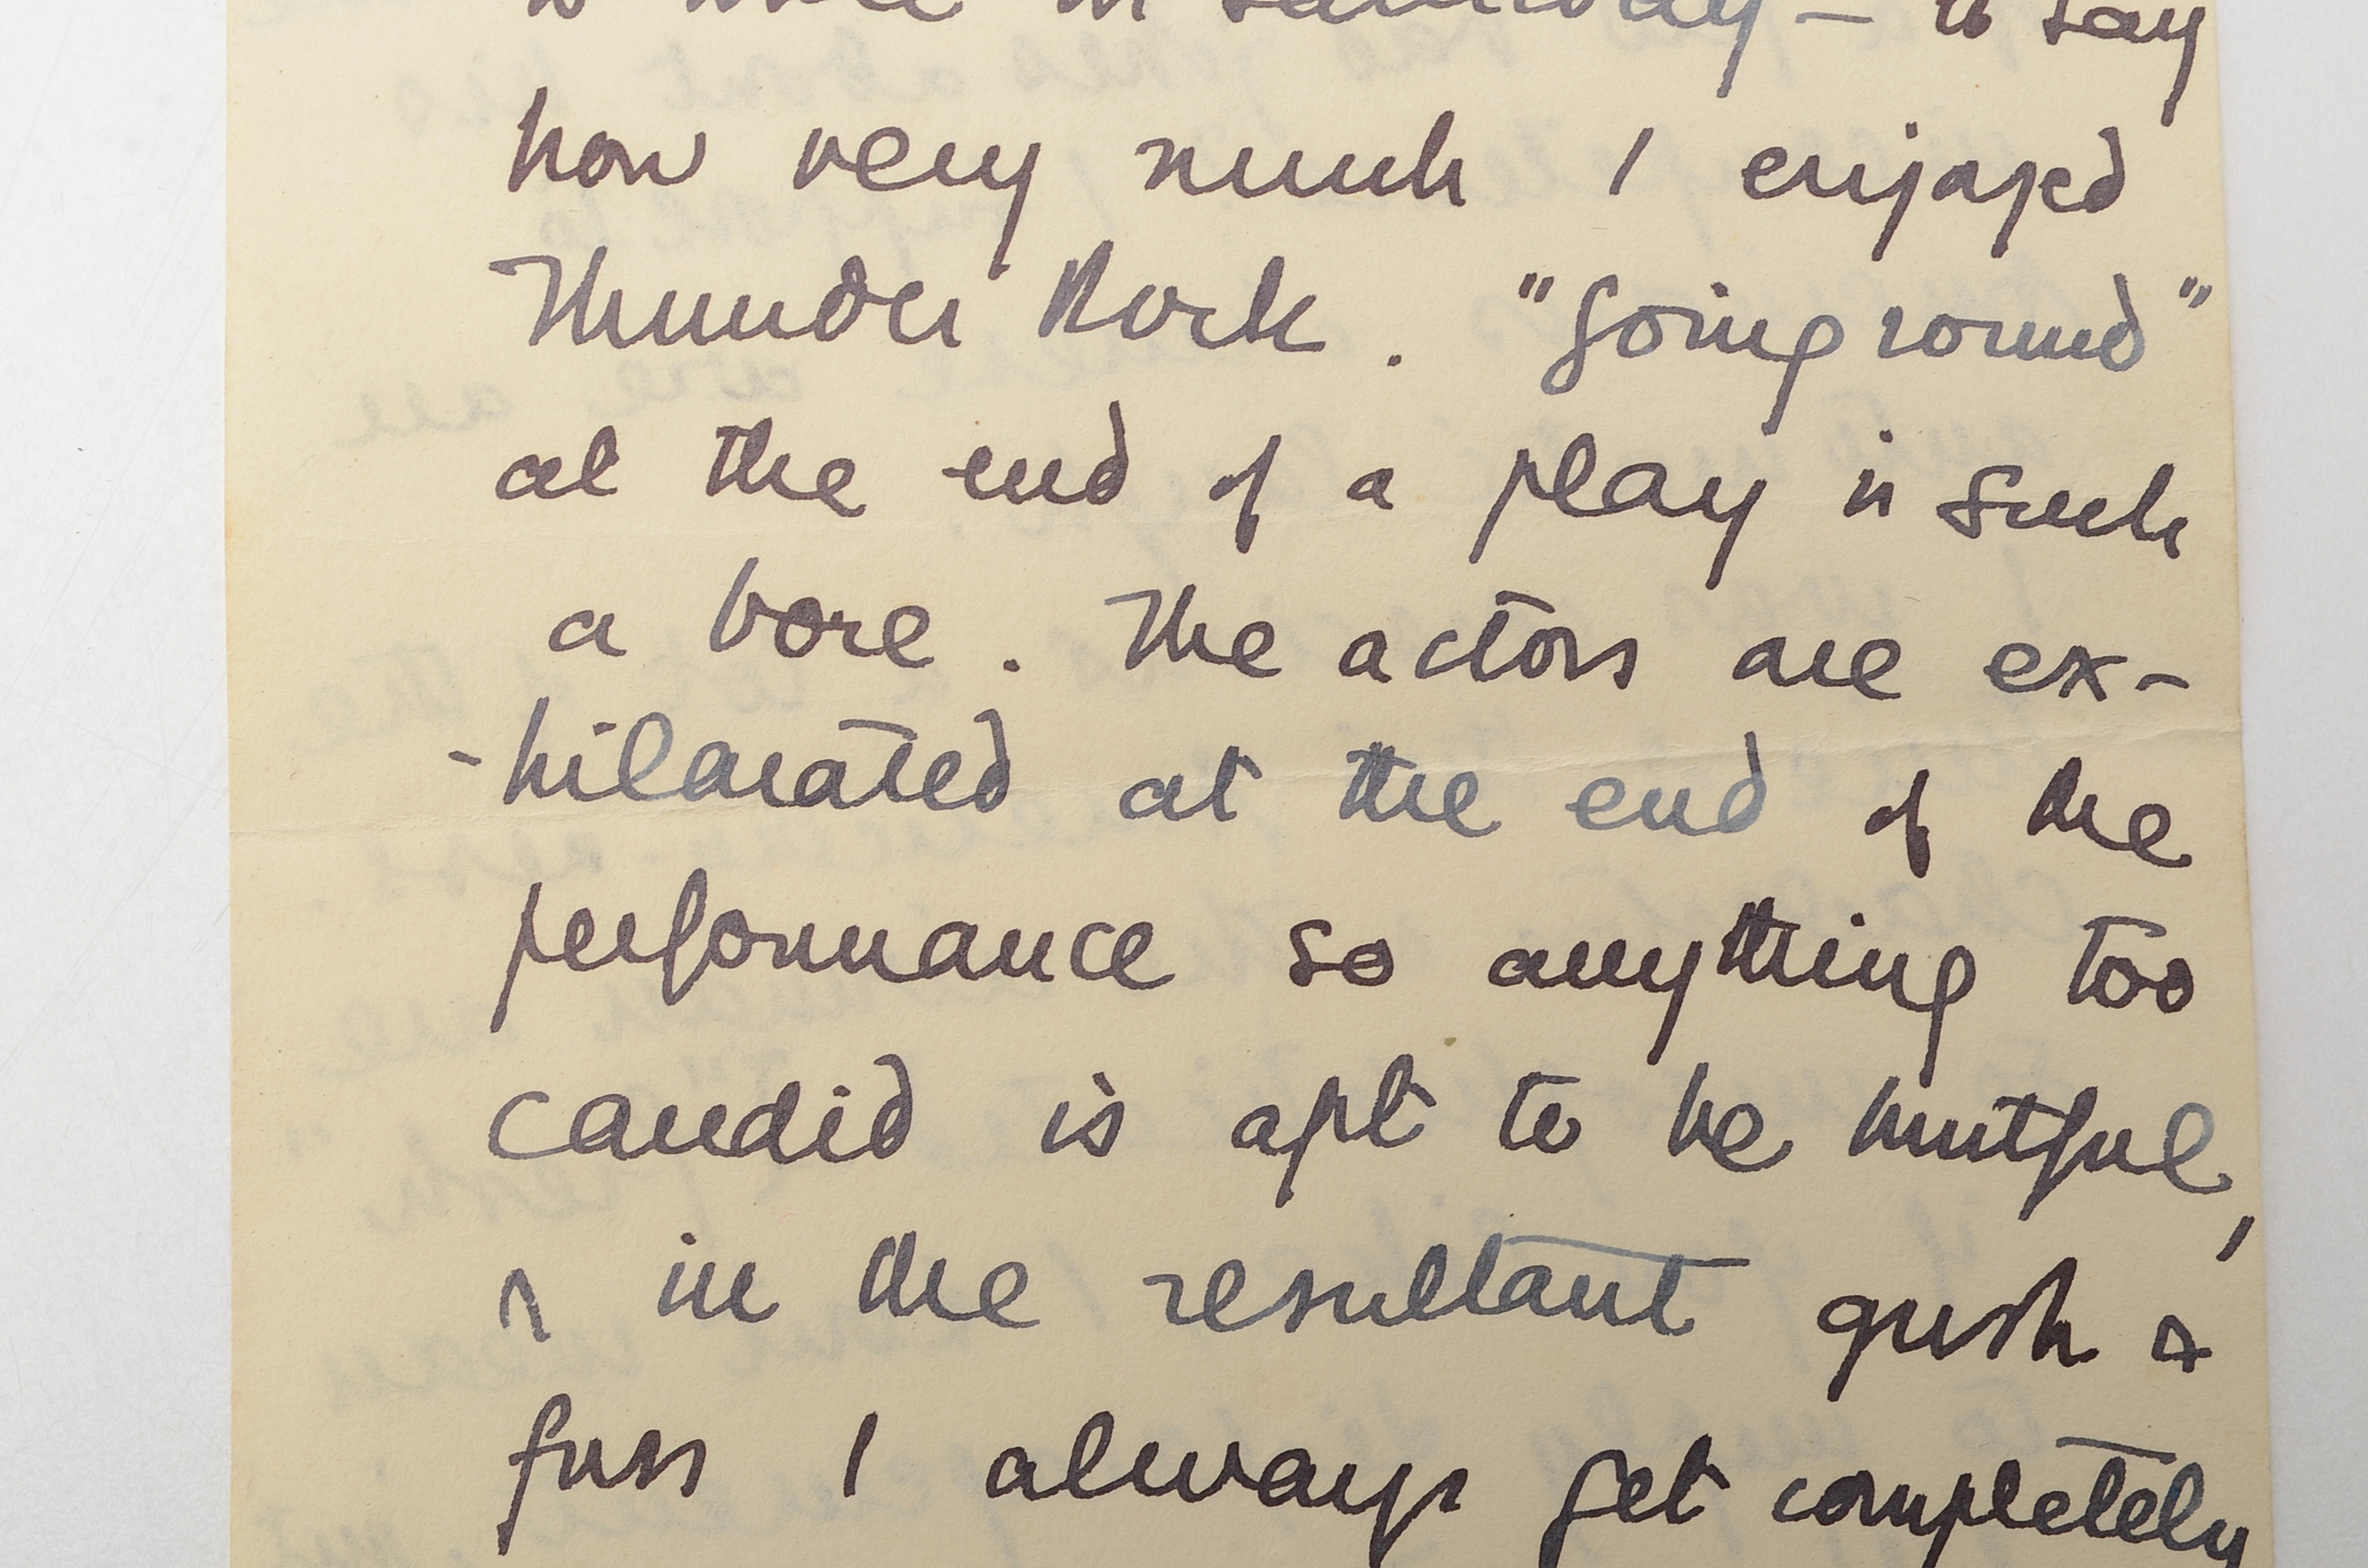 to write on Saturday – to say
how very much I enjoyed
Thunder Rock. "Going round"
at the end of a play is such
a bore. The actors are ex-
-hilarated at the end of the
performance so anything too
candid is apt to be hurtful,
& in the resultant gush &
fuss I always get completely